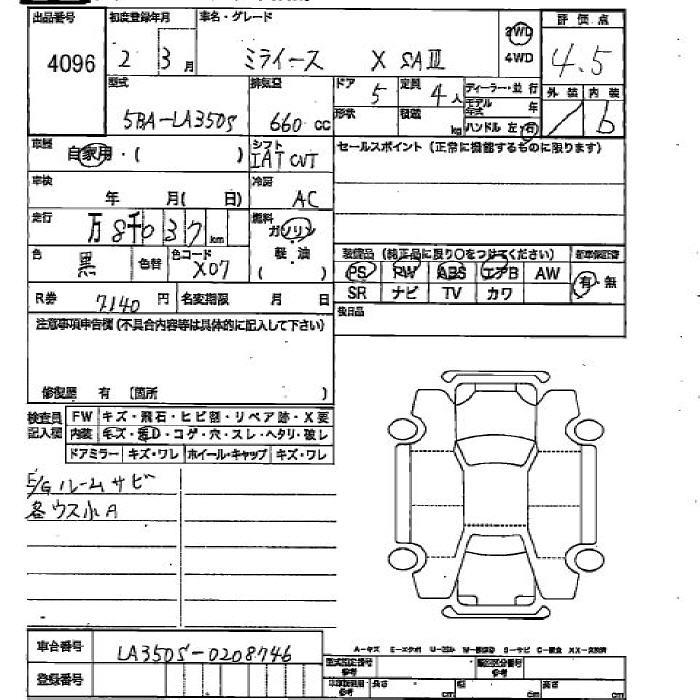 出品番号 初度登録年月 車名・グレード 評価点
4096 2 3月 ミライース X SAIII 2WD 4WD 4.5
型式 排気量 ドア 5 定員 4人 ディーラー・並行 外装 内装
5BA-LA350S 660cc 形状 積載 kg モデル年式 年 ハンドル 左・右 b
車歴 自家用・( ) シフト IAT CVT セールスポイント (正常に機能するものに限ります)
車検 年 月( 日) 冷房 AC
走行 万8千037km 燃料 ガソリン 軽油 ( )
色 黒 色替 色コード X07
装備品 (純正品に限り○をつけてください) 新車保証書
PS PW ABS エアB AW 有・無
SR ナビ TV カワ
R券 7140円 名変期限 月 日 後日品
注意事項申告欄 (不具合内容等は具体的に記入して下さい)
修復歴 有 〔箇所 〕
検査員記入欄 FW キズ・飛石・ヒビ割・リペア跡・X要
内装 コゲ・穴・スレ・ヘタリ・破レ
ドアミラー キズ・ワレ ホイール・キャップ キズ・ワレ
E/Gルームサビ
各ウス小A
車台番号 LA350S-0208746
A-キズ
登録番号 型式指定番号 参考 類別区分番号 参考
長さ cm 幅 cm 高さ cm